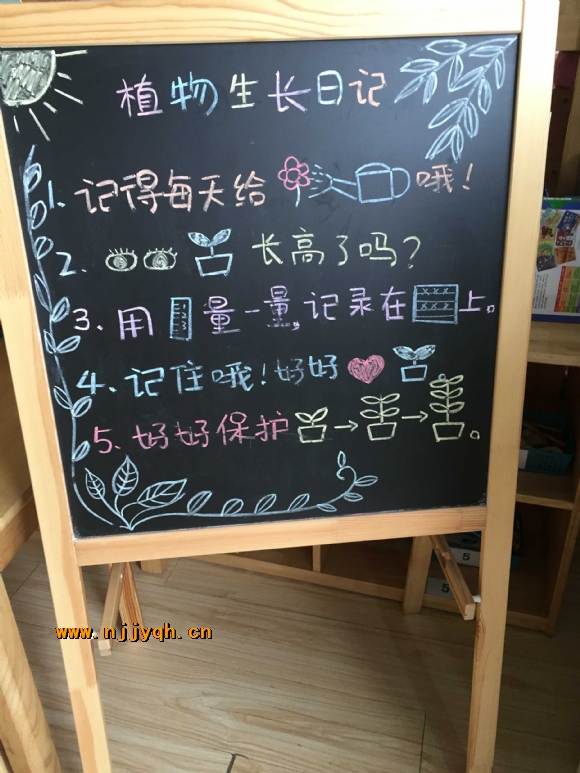 植物生长日记
1. 记得每天给哦!
2. 长高了吗?
3、用量一量,记录在上。
4、记住哦!好好
5、好好保护。
www.njjyqh.cn
5